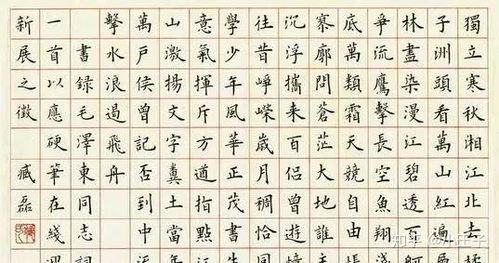 獨立寒秋湘江北去
子洲頭看萬山紅遍
林盡染漫江碧透百
爭流鷹擊長空魚翔
底萬類霜天競自由
寥廓問蒼茫大地誰
沉浮攜來百侣曾遊
往昔崢嶸歲月稠恰
學少年風華正茂書
意氣揮斥方遒指點
山激揚文字糞土當
萬户侯曾記否到中
擊水浪遏飛舟
書録毛澤東同志
一首以應硬筆在綫
新展之徵 臧磊
知乎